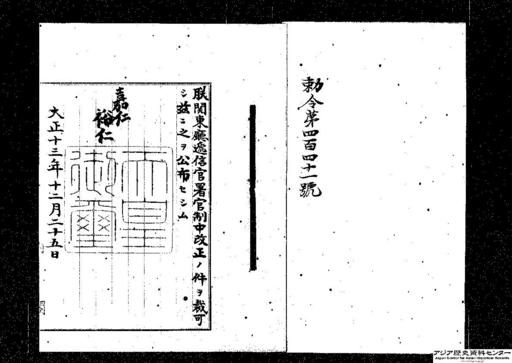 勅令第四百四十一號
朕関東廳逓信官署官制中改正ノ件ヲ裁可
シ茲ニ之ヲ公布セシム
嘉仁
裕仁
天皇
御璽
大正十三年十二月二十五日
アジア歴史資料センター
Japan Center for Asian Historical Records